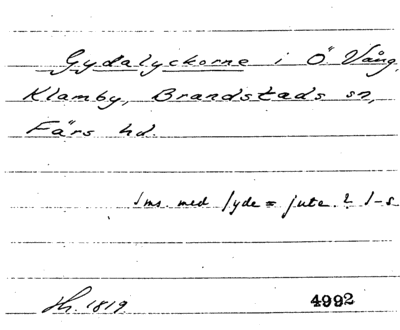 Gydalyckorne i Ö Vång,
Klamby, Brandstads sn,
Färs hd.
Sms. med Jyde = jute? J-s
Hr. 1819 4992